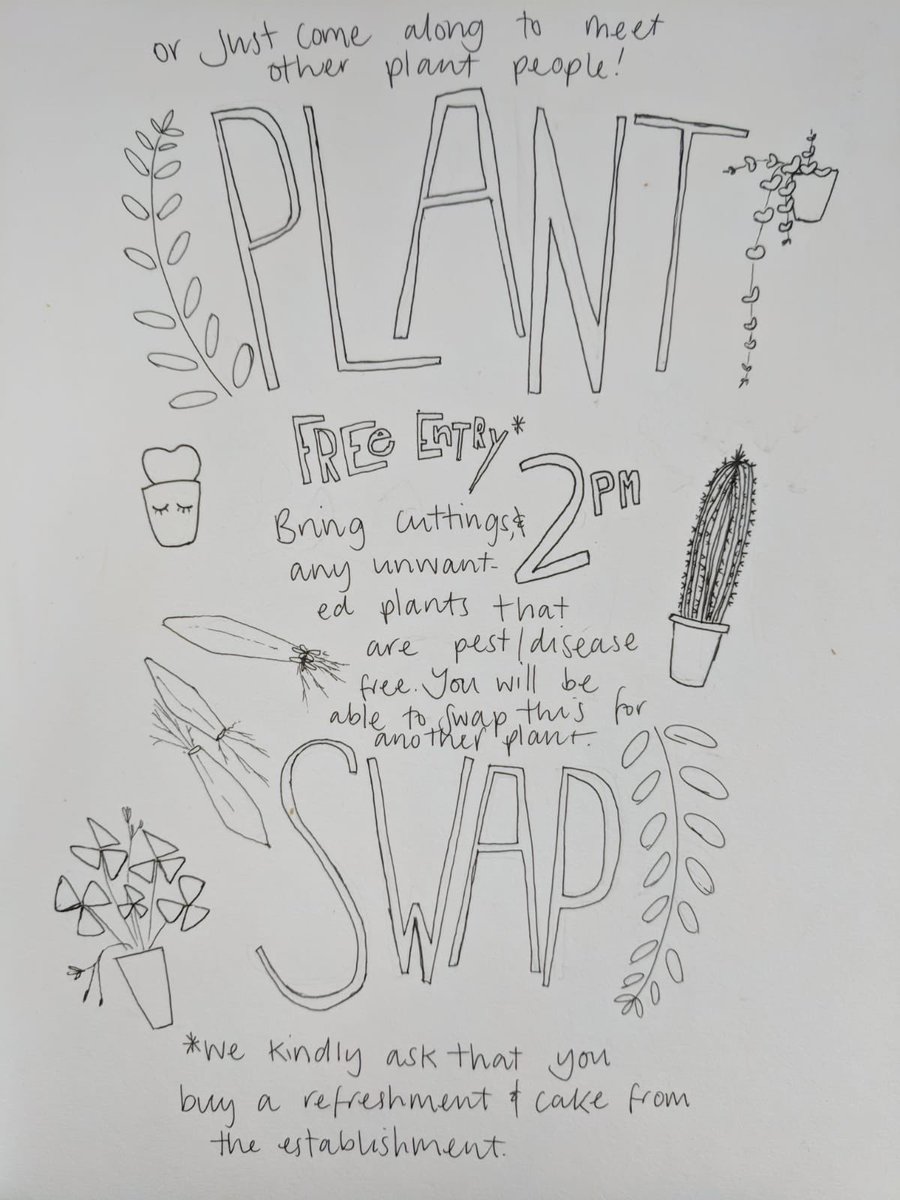 or Just come along to meet
other plant people!
PLANT
FREE ENTRY*
2PM
Bring cuttings, &
any unwant-
ed plants that
are pest/disease
free. You will be
able to swap this for
another plant.
SWAP
*We kindly ask that you
buy a refreshment & cake from
the establishment.